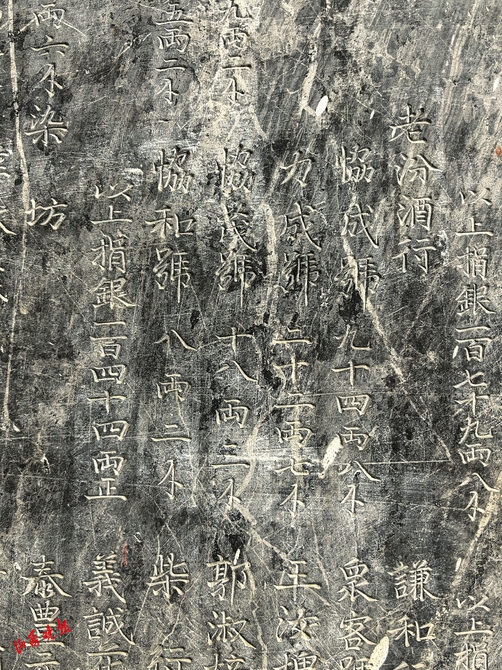 以上捐銀一百七十九兩八个 以上捐
老汾酒行 謙和
協成號 九十四兩八个 衆客
力成號 二十二兩七个 王汝
九兩二个 協茂號 十八兩三个 郭淑
五兩二个 協和號 八兩二个 柴行
以上捐銀一百四十四兩正 義誠
兩六个 染坊 泰豊